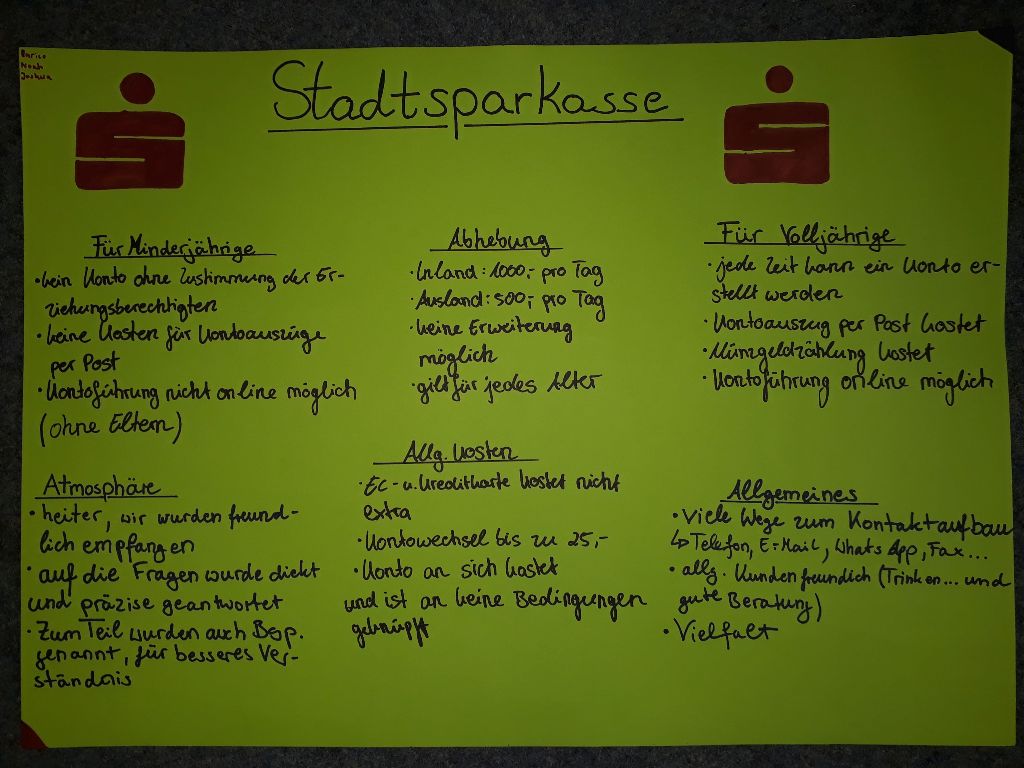 Enrico
Noah
Joshua
Stadtsparkasse
Für Minderjährige
• kein Konto ohne Zustimmung der Er-
ziehungsberechtigten
• keine Kosten für Kontoauszüge
per Post
• Kontoführung nicht online möglich
(ohne Eltern)
Abhebung
· Inland: 1000,- pro Tag
· Ausland: 500,- pro Tag
· keine Erweiterung
möglich
· gilt für jedes Alter
Für Volljährige
· jede Zeit kann ein Konto er-
stellt werden
· Kontoauszug per Post kostet
· Münzgeldzählung kostet
· Kontoführung online möglich
Atmosphäre
• heiter, wir wurden freund-
lich empfangen
• auf die Fragen wurde diekt
und präzise geantwortet
• Zum Teil wurden auch Bsp.
genannt, für besseres Ver-
ständnis
Allg. Kosten
· EC- u. Kreditkarte kostet nicht
extra
· Kontowechsel bis zu 25,-
· Konto an sich kostet
und ist an keine Bedingungen
geknüpft
Allgemeines
• Viele Wege zum Kontaktaufbau
↳ Telefon, E-Mail, WhatsApp, Fax...
• allg. Kundenfreundlich (Trinken... und
gute Beratung)
• Vielfalt